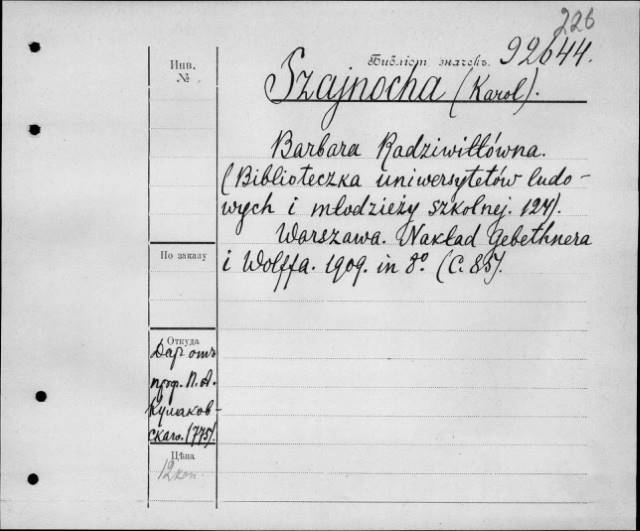 226
Инв.
№
Библіот. значекъ. 92644.
Szajnocha (Karol).
Barbara Radziwiłłówna.
(Biblioteczka uniwersytetów ludo-
wych i młodzieży szkolnej. 124).
Warszawa. Nakład Gebethnera
i Wolffa. 1909. in 8º. (С. 85).
По заказу
Откуда
Даръ отъ
проф. П. А.
Кулаков-
скаго. (775).
Цѣна
12 коп.